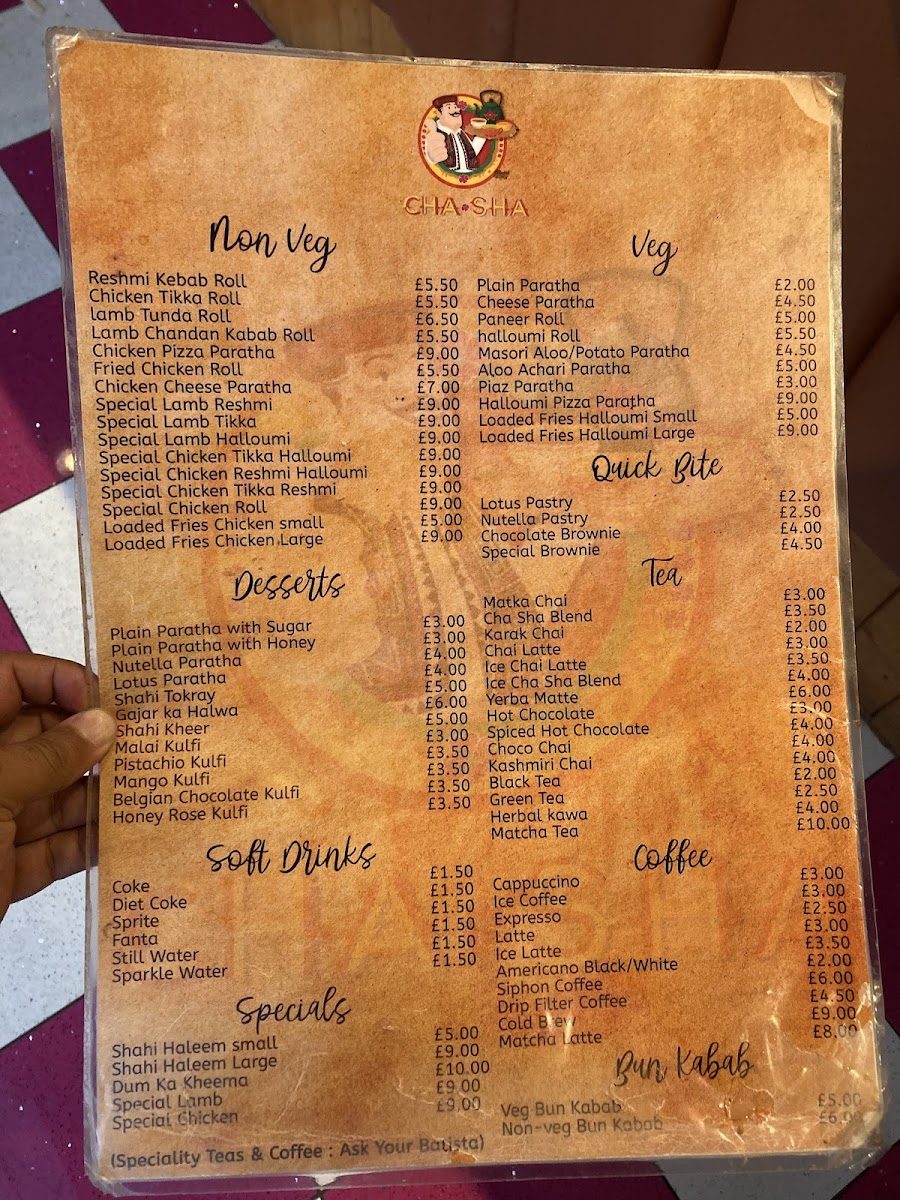 CHA SHA
Non Veg
Reshmi Kebab Roll £5.50
Chicken Tikka Roll £5.50
lamb Tunda Roll £6.50
Lamb Chandan Kabab Roll £5.50
Chicken Pizza Paratha £9.00
Fried Chicken Roll £5.50
Chicken Cheese Paratha £7.00
Special Lamb Reshmi £9.00
Special Lamb Tikka £9.00
Special Lamb Halloumi £9.00
Special Chicken Tikka Halloumi £9.00
Special Chicken Reshmi Halloumi £9.00
Special Chicken Tikka Reshmi £9.00
Special Chicken Roll £9.00
Loaded Fries Chicken small £5.00
Loaded Fries Chicken Large £9.00
Desserts
Plain Paratha with Sugar £3.00
Plain Paratha with Honey £3.00
Nutella Paratha £4.00
Lotus Paratha £4.00
Shahi Tokray £5.00
Gajar ka Halwa £6.00
Shahi Kheer £5.00
Malai Kulfi £3.00
Pistachio Kulfi £3.50
Mango Kulfi £3.50
Belgian Chocolate Kulfi £3.50
Honey Rose Kulfi £3.50
Soft Drinks
Coke £1.50
Diet Coke £1.50
Sprite £1.50
Fanta £1.50
Still Water £1.50
Sparkle Water £1.50
Specials
Shahi Haleem small £5.00
Shahi Haleem Large £9.00
Dum Ka Kheema £10.00
Special Lamb £9.00
Special Chicken £9.00
(Speciality Teas & Coffee : Ask Your Batista)
Veg
Plain Paratha £2.00
Cheese Paratha £4.50
Paneer Roll £5.00
halloumi Roll £5.50
Masori Aloo/Potato Paratha £4.50
Aloo Achari Paratha £5.00
Piaz Paratha £3.00
Halloumi Pizza Paratha £9.00
Loaded Fries Halloumi Small £5.00
Loaded Fries Halloumi Large £9.00
Quick Bite
Lotus Pastry £2.50
Nutella Pastry £2.50
Chocolate Brownie £4.00
Special Brownie £4.50
Tea
Matka Chai £3.00
Cha Sha Blend £3.50
Karak Chai £2.00
Chai Latte £3.00
Ice Chai Latte £3.50
Ice Cha Sha Blend £4.00
Yerba Matte £6.00
Hot Chocolate £3.00
Spiced Hot Chocolate £4.00
Choco Chai £4.00
Kashmiri Chai £4.00
Black Tea £2.00
Green Tea £2.50
Herbal kawa £4.00
Matcha Tea £10.00
Coffee
Cappuccino £3.00
Ice Coffee £3.00
Expresso £2.50
Latte £3.00
Ice Latte £3.50
Americano Black/White £2.00
Siphon Coffee £6.00
Drip Filter Coffee £4.50
Cold Brew £9.00
Matcha Latte £8.00
Bun Kabab
Veg Bun Kabab £5.00
Non-veg Bun Kabab £6.00